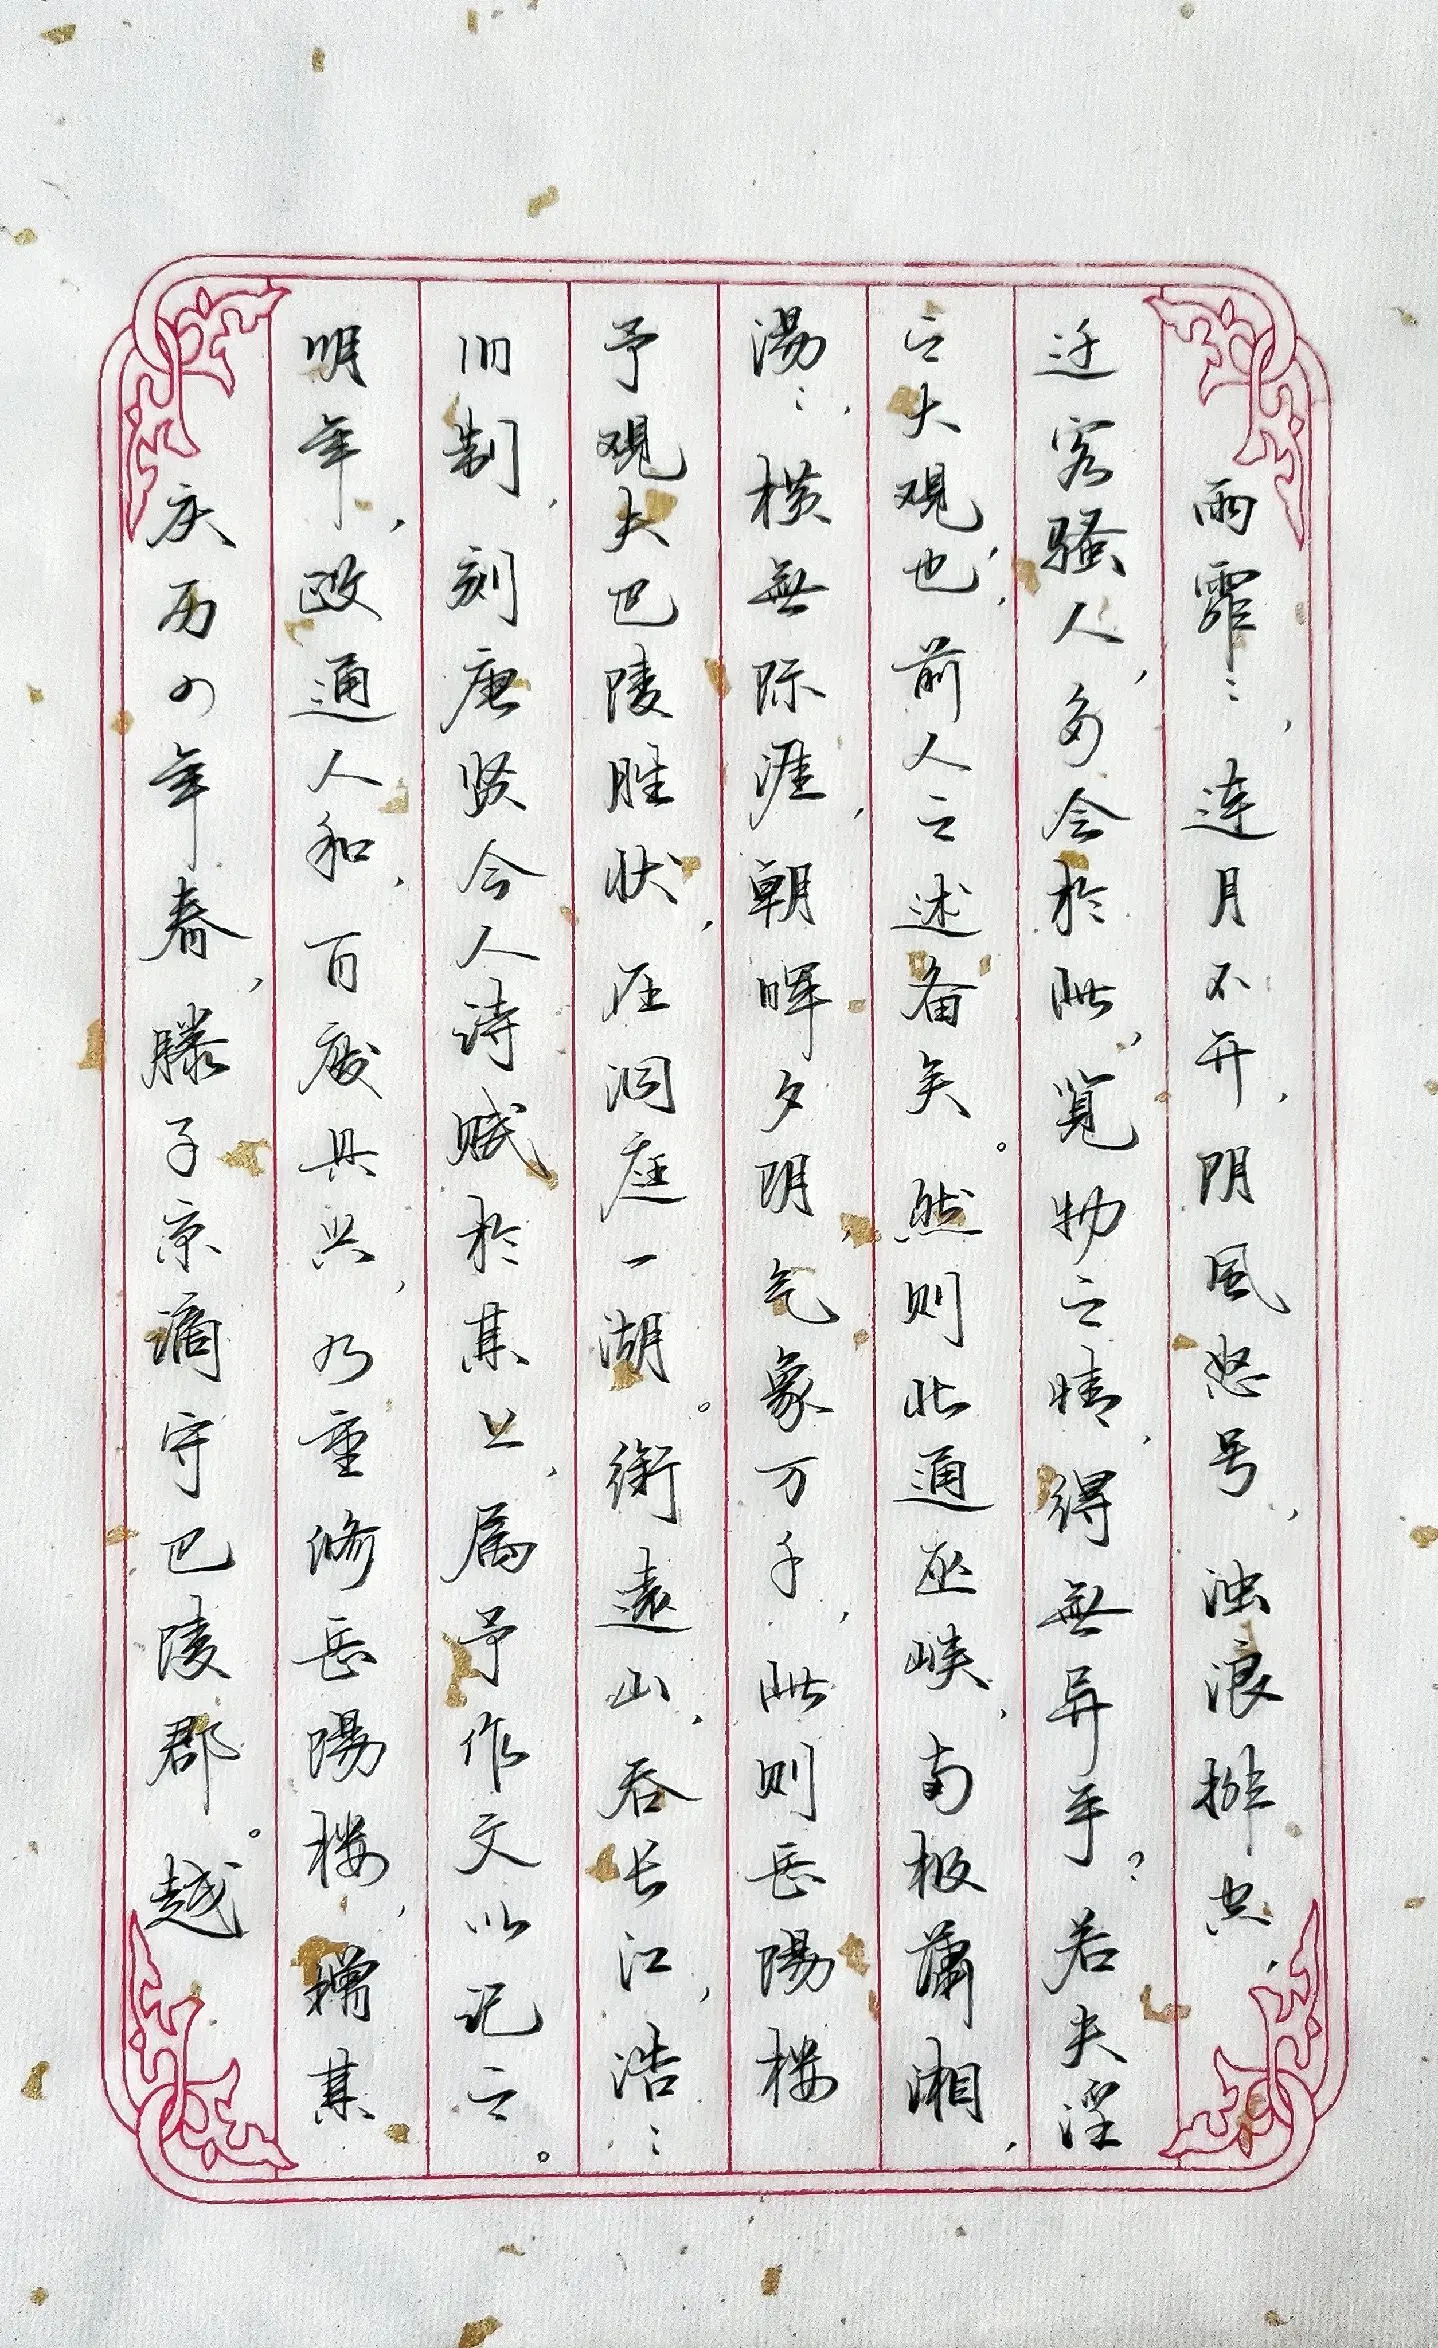 庆历四年春，滕子京谪守巴陵郡。越
明年，政通人和，百废具兴，乃重修岳陽楼，增其
旧制，刻唐贤今人诗赋於其上，属予作文以记之。
予观夫巴陵胜状，在洞庭一湖。衔遠山，吞长江，浩〻
湯〻，横無际涯，朝晖夕阴，气象万千，此则岳陽楼
之大观也，前人之述备矣。然则北通巫峡，南极潇湘，
迁客骚人，多会於此，览物之情，得無异乎？若夫淫
雨霏〻，连月不开，阴风怒号，浊浪排空，